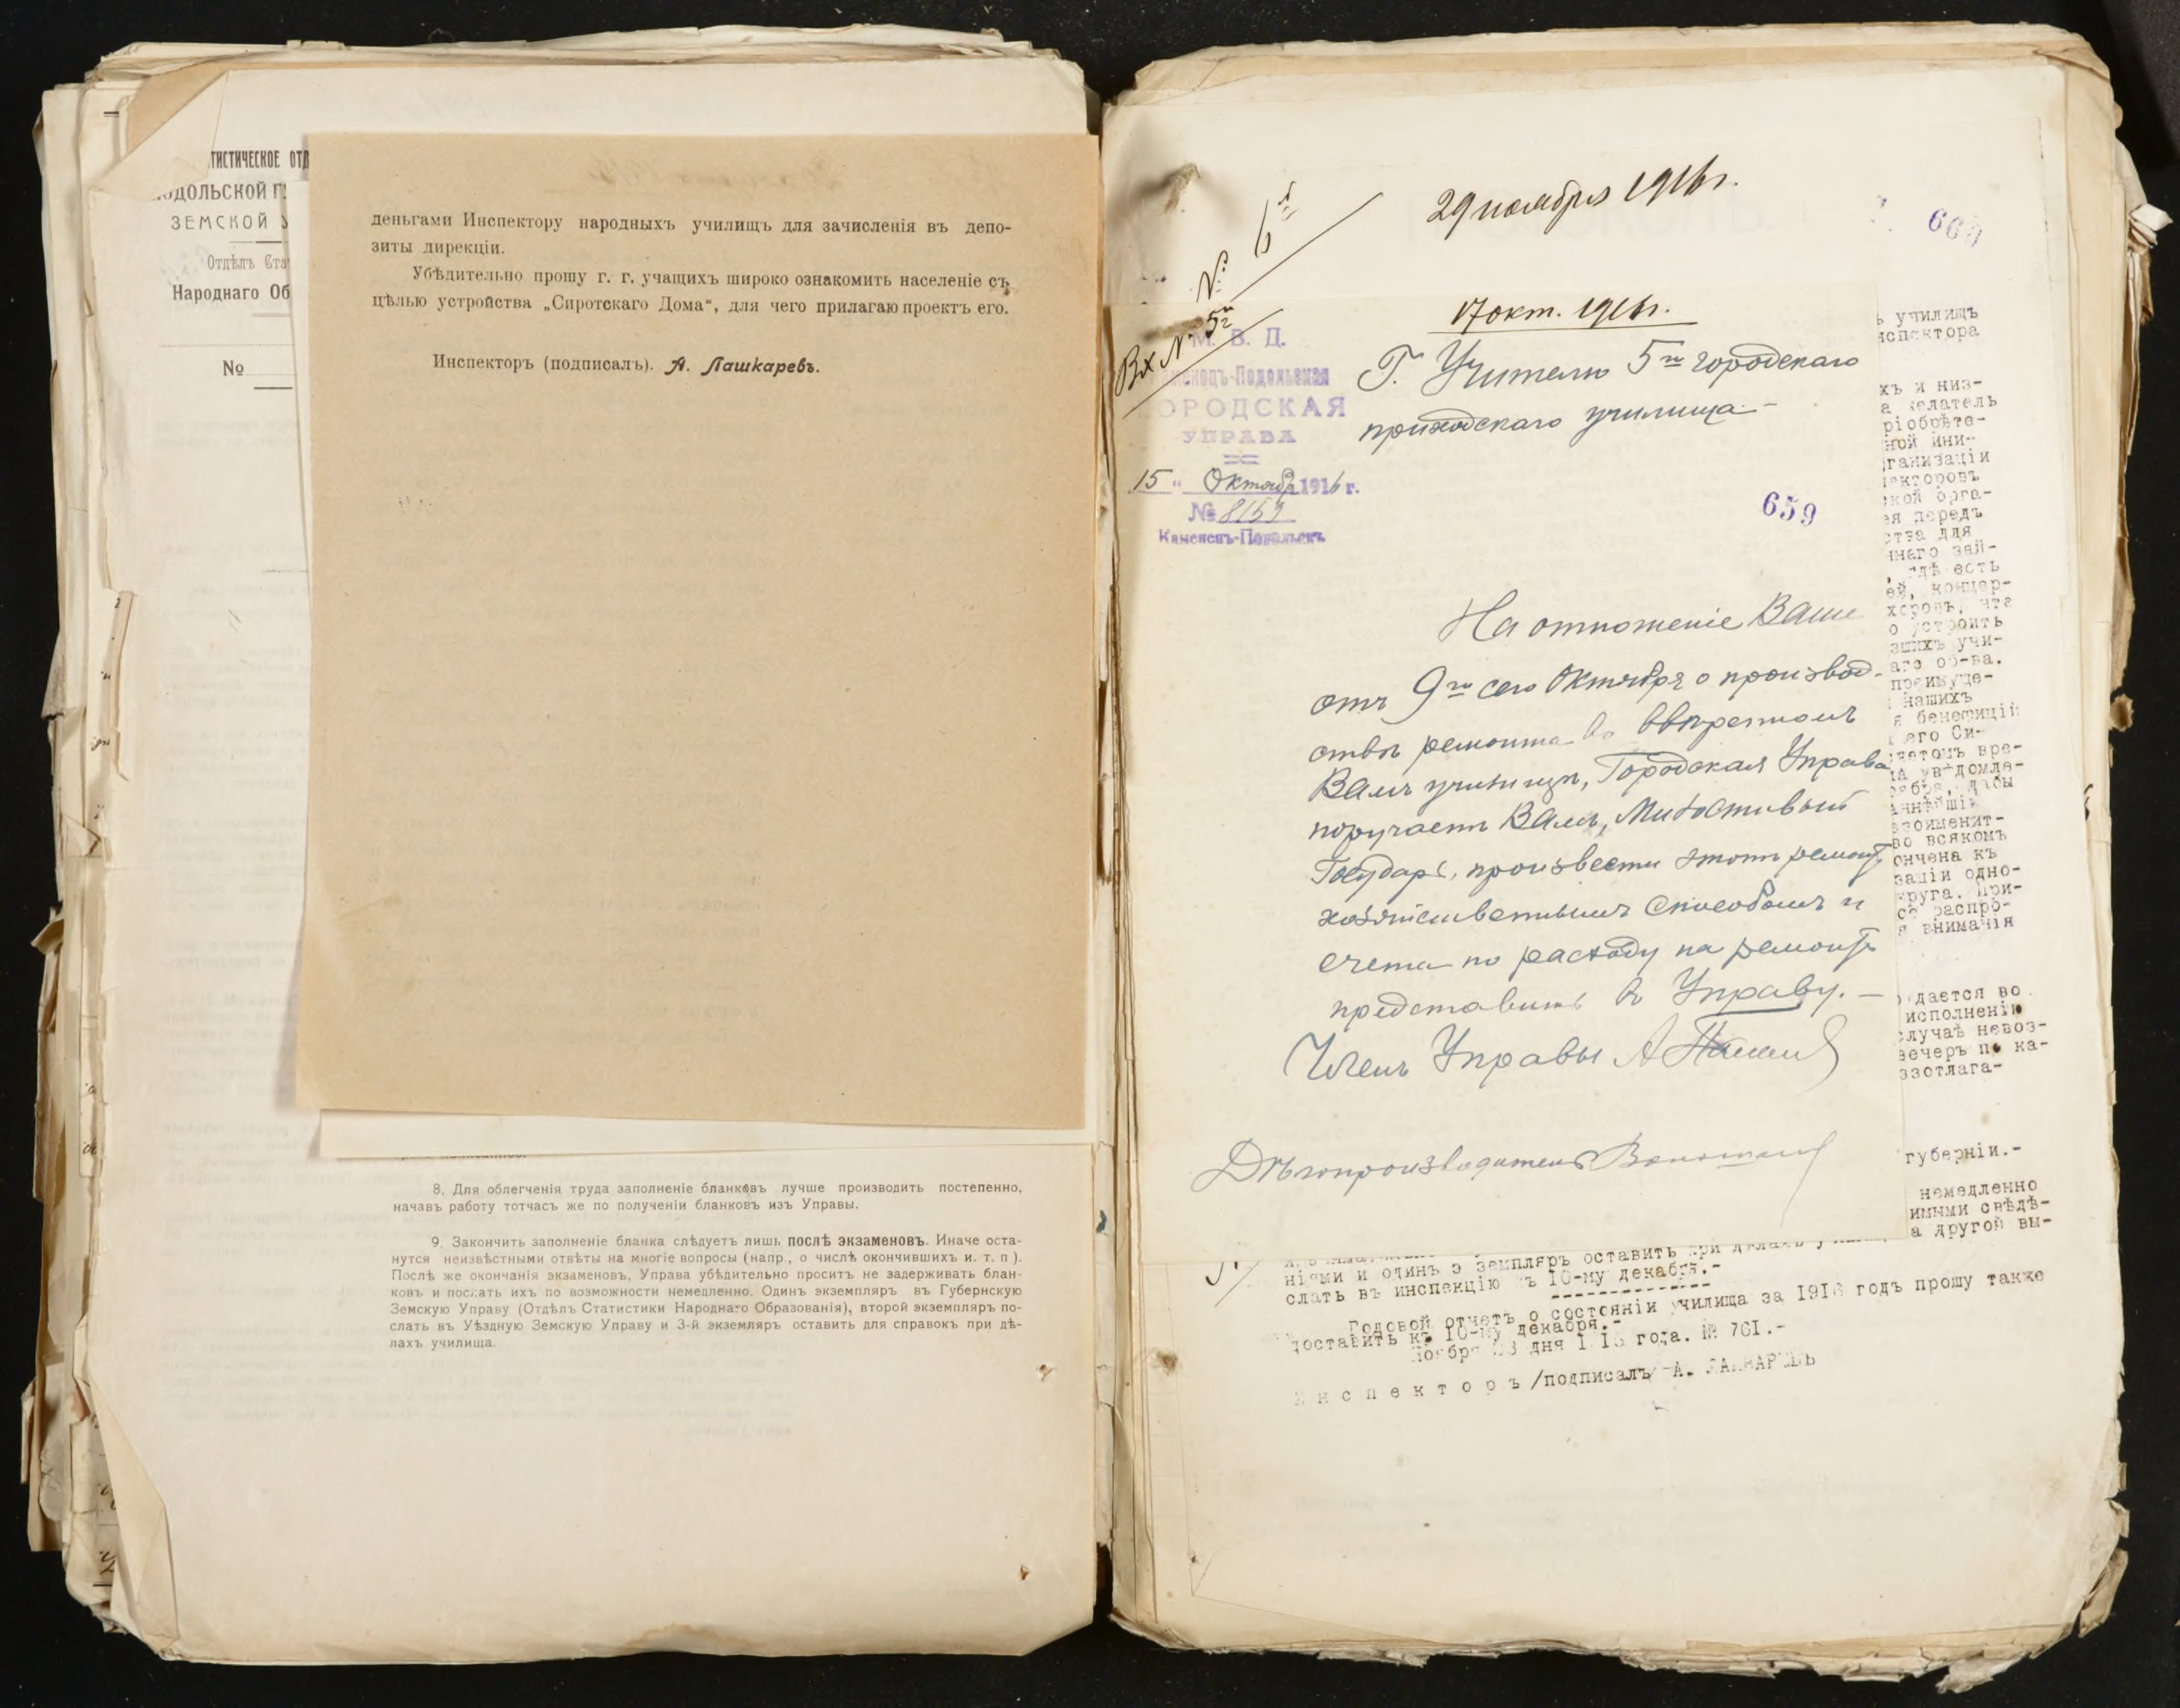 ТИСТИЧЕСКОЕ ОТД
ОДОЛЬСКОЙ Г
ЗЕМСКОЙ У
Отдѣлъ Ста
Народнаго Об
№
деньгами Инспектору народныхъ училищъ для зачисленія въ депо-
зиты дирекціи.
Убѣдительно прошу г. г. учащихъ широко ознакомить населеніе съ
цѣлью устройства „Сиротскаго Дома“, для чего прилагаю проектъ его.
Инспекторъ (подписалъ). А. Лашкаревъ.
8. Для облегченія труда заполненіе бланковъ лучше производить постепенно,
начавъ работу тотчасъ же по полученіи бланковъ изъ Управы.
9. Закончить заполненіе бланка слѣдуетъ лишь послѣ экзаменовъ. Иначе оста-
нутся неизвѣстными отвѣты на многіе вопросы (напр., о числѣ окончившихъ и. т. п ).
Послѣ же окончанія экзаменовъ, Управа убѣдительно проситъ не задерживать блан-
ковъ и послать ихъ по возможности немедленно. Одинъ экземпляръ въ Губернскую
Земскую Управу (Отдѣлъ Статистики Народнаго Образованія), второй экземпляръ по-
слать въ Уѣздную Земскую Управу и 3-й экземляръ оставить для справокъ при дѣ-
лахъ училища.
29 ноября 1916 г.
660
17 окт. 1916 г.
Вх №
М. В. Д.
ОРОДСКАЯ
УПРАВА
15 " Октября 1916 г.
№ 8159
Каменецъ-Подольскъ
Г. Учителю 5го городскаго
приходскаго училища
659
На отношеніе Ваше
отъ 9го сего Октября о производ-
ствѣ ремонта во ввѣренномъ
Вамъ училищѣ, Городская Управа
поручаетъ Вамъ, Милостивый
Государь, произвести этотъ ремонтъ
хозяйственнымъ способомъ и
счета по расходу на ремонтъ
представить въ Управу. —
Членъ Управы
Дѣлопроизводитель
ъ училищъ
нспектора
хъ и низ-
а желатель
ріобрѣте-
ной ини-
рганизаціи
пекторовъ
ской орга-
ея передъ
ства для
ннаго зай-
, гдѣ есть
ей, концер-
хоровъ, что
о устроить
зшихъ учи-
аго об-ва.
преимуще-
нашихъ
я бенефиціи
его Си-
нятомъ вре-
на увѣдомле-
ября, дабы
аннѣйшія
зоименит-
во всякомъ
ончена къ
заціи одно-
круга. При-
со распро-
я вниманія
дается во
исполненію
случаѣ невоз-
вечеръ по ка-
зотлага-
губерніи.-
немедленно
имыми свѣдѣ-
а другой вы-
ніями и одинъ экземпляръ оставить при дѣлахъ
слать въ инспекцію къ 10-му декабря.-
Годовой отчетъ о состояніи училища за 1916 годъ прошу также
доставить къ 10-му декабря.-
Ноября 23 дня 1916 года. № 761.-
Инспекторъ /подписалъ/ А. ЛАШКАРЕВЪ